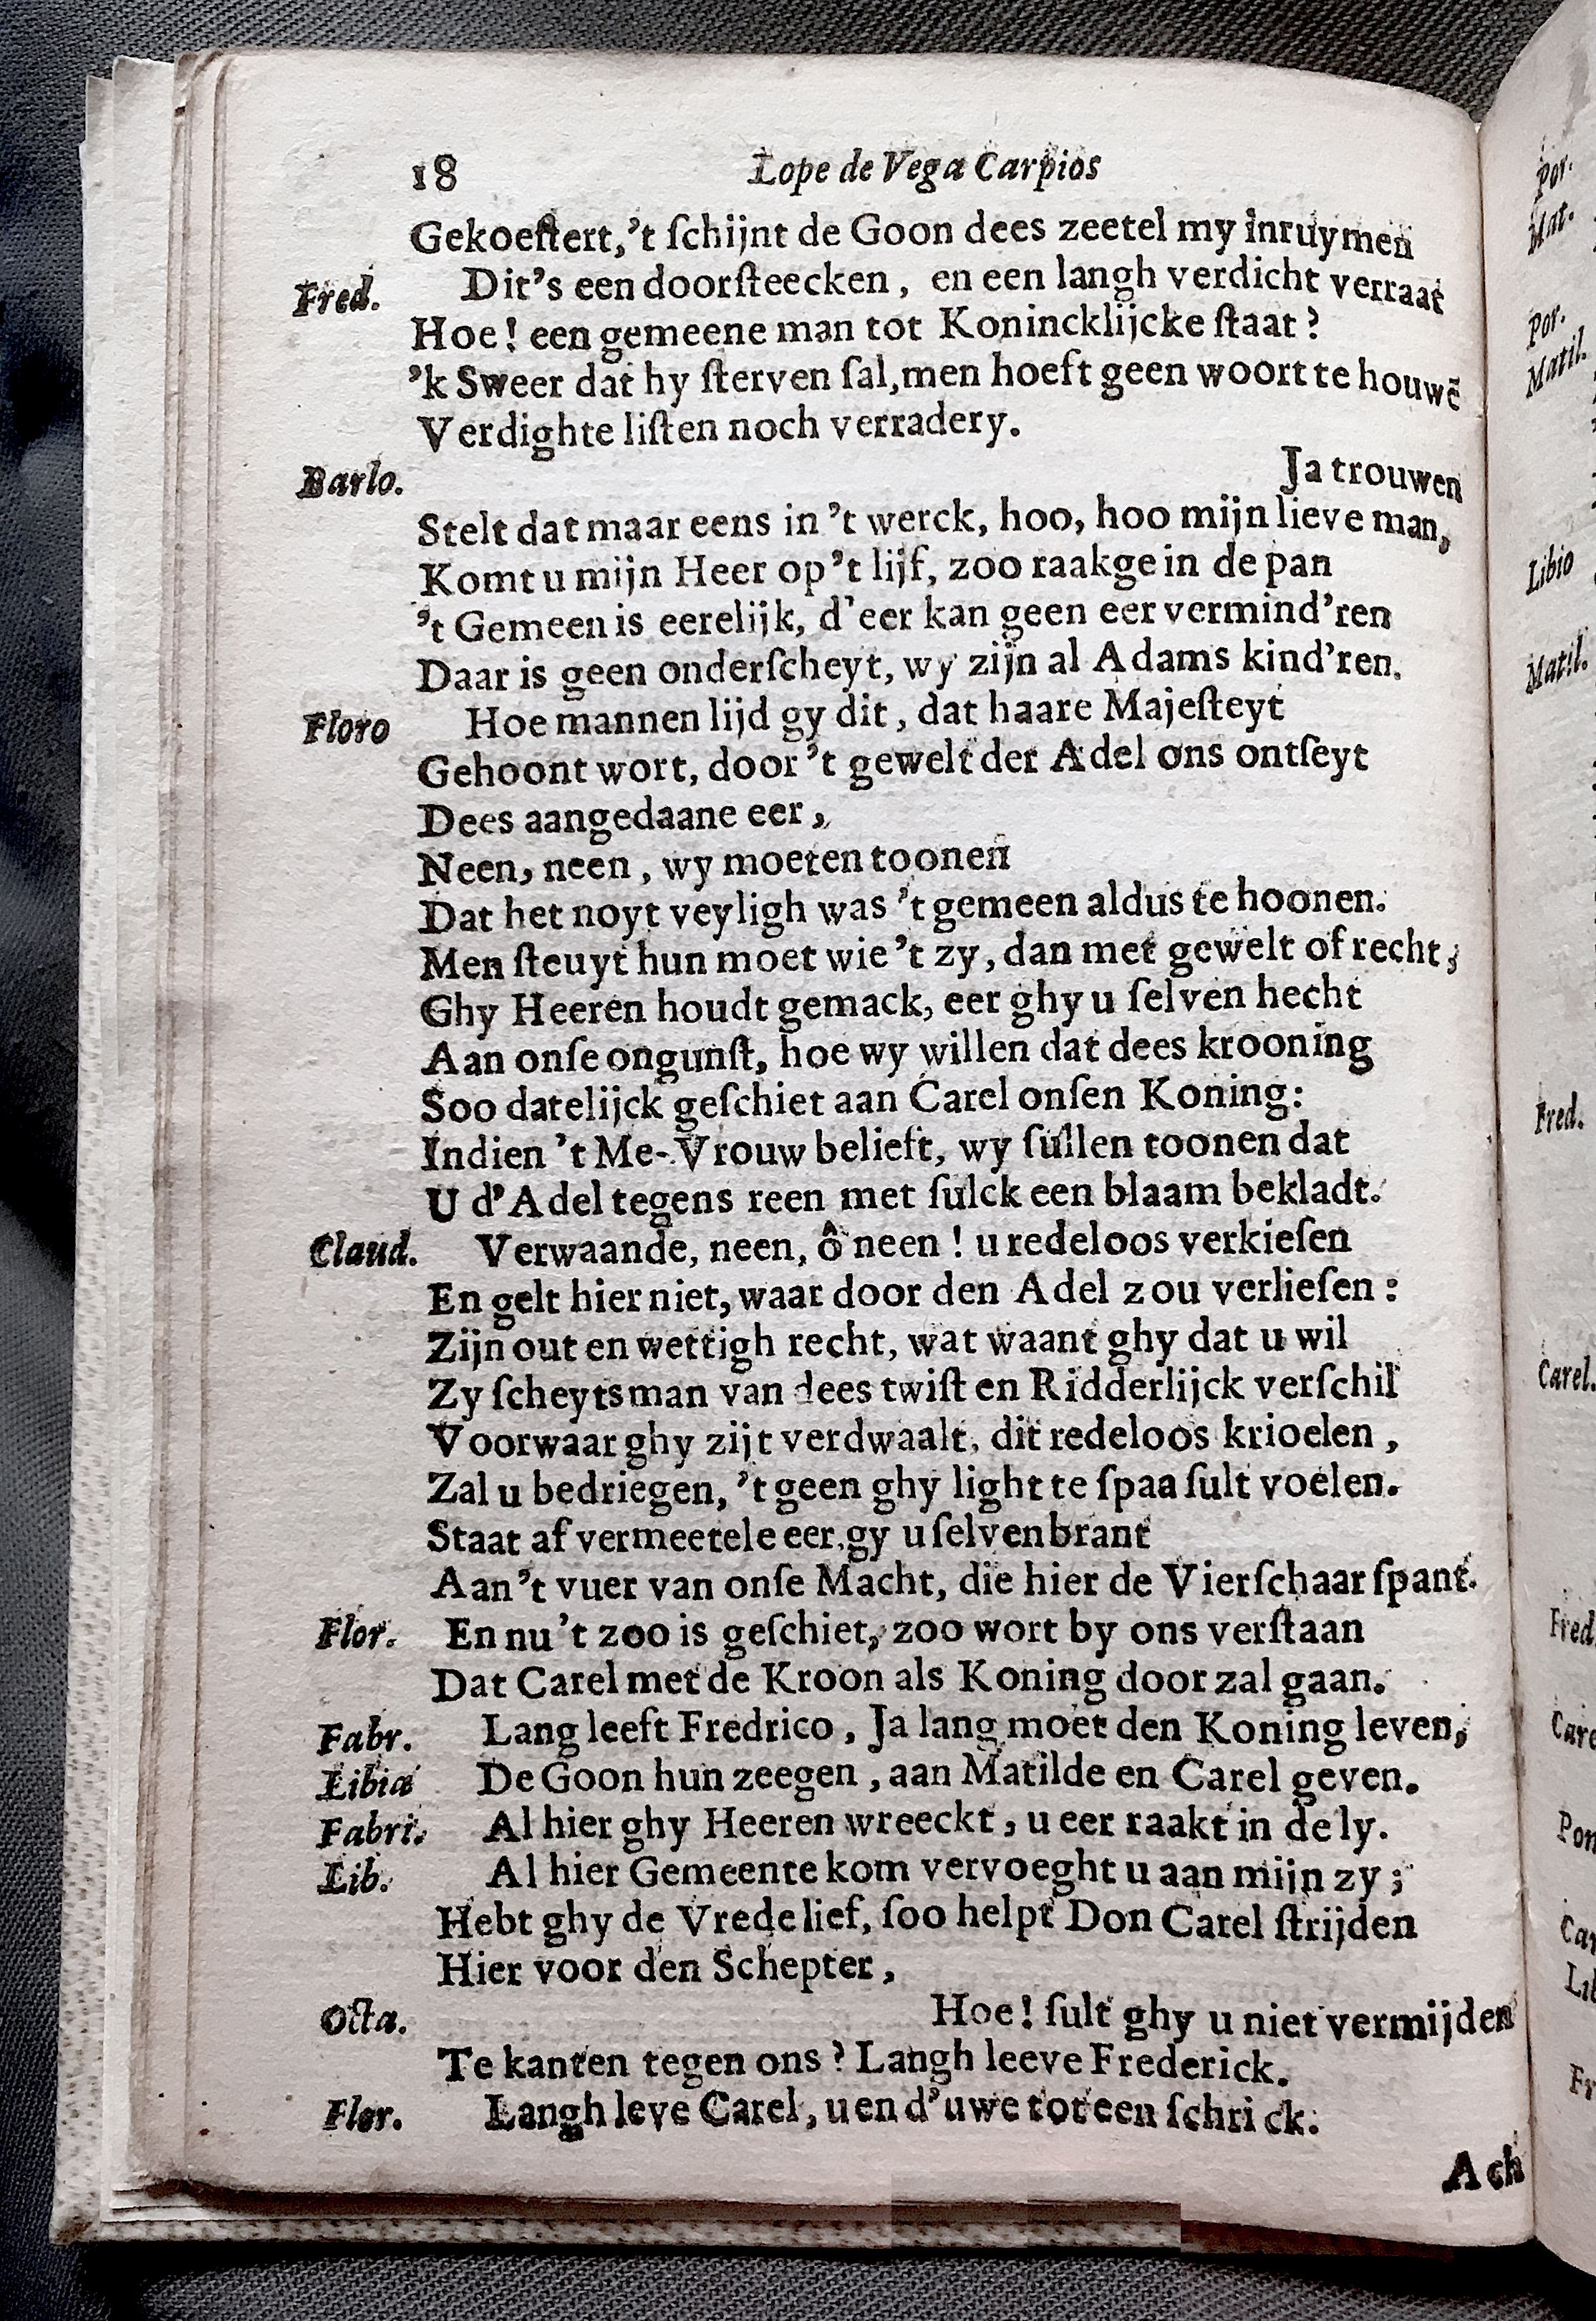 18 Lope de Vega Carpios
Gekoeſtert,'t ſchijnt de Goon dees zeetel my inruymen
Fred. Dit's een doorſteecken, en een langh verdicht verraat
Hoe! een gemeene man tot Konincklijcke ſtaat?
'k Sweer dat hy ſterven ſal,men hoeft geen woort te houwē
Verdighte liſten noch verradery.
Barlo. Ja trouwen
Stelt dat maar eens in 't werck, hoo, hoo mijn lieve man,
Komt u mijn Heer op 't lijf, zoo raakge in de pan
't Gemeen is eerelijk, d'eer kan geen eer vermind'ren
Daar is geen onderſcheyt, wy zijn al Adams kind'ren.
Floro Hoe mannen lijd gy dit, dat haare Majeſteyt
Gehoont wort, door 't gewelt der Adel ons ontſeyt
Dees aangedaane eer,
Neen, neen, wy moeten toonen
Dat het noyt veyligh was 't gemeen aldus te hoonen.
Men ſteuyt hun moet wie 't zy, dan met gewelt of recht,
Ghy Heeren houdt gemack, eer ghy u ſelven hecht
Aan onſe ongunſt, hoe wy willen dat dees krooning
Soo datelijck geſchiet aan Carel onſen Koning:
Indien 't Me-Vrouw belieft, wy ſullen toonen dat
U d'Adel tegens reen met ſulck een blaam bekladt.
Claud. Verwaande, neen, ô neen! u redeloos verkieſen
En gelt hier niet, waar door den Adel zou verlieſen:
Zijn out en wettigh recht, wat waant ghy dat u wil
Zy ſcheytsman van dees twiſt en Ridderlijck verſchil
Voorwaar ghy zijt verdwaalt, dit redeloos krioelen,
Zal u bedriegen, 't geen ghy light te ſpaa ſult voelen.
Staat af vermeetele eer,gy u ſelven brant
Aan 't vuer van onſe Macht, die hier de Vierſchaar ſpant.
Flor. En nu 't zoo is geſchiet, zoo wort by ons verſtaan
Dat Carel met de Kroon als Koning door zal gaan.
Fabr. Lang leeft Fredrico, Ja lang moet den Koning leven,
Libia De Goon hun zeegen, aan Matilde en Carel geven.
Fabri. Al hier ghy Heeren wreeckt, u eer raakt in de ly.
Lib. Al hier Gemeente kom vervoeght u aan mijn zy;
Hebt ghy de Vrede lief, ſoo helpt Don Carel ſtrijden
Hier voor den Schepter,
Octa. Hoe! ſult ghy u niet vermijden
Te kanten tegen ons? Langh leeve Frederick.
Flor. Langh leve Carel, u en d'uwe tot een ſchrick.
Ach
Por.
Mat.
Por.
Matil.
Libio
Matil.
Fred.
Carel.
Fred
Care
Pon
Car
Lib
Fr